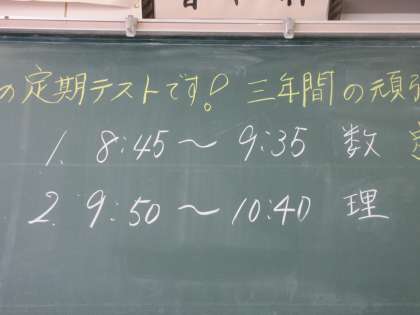 の定期テストです! 三年間の頑張
1. 8:45〜9:35 数
2. 9:50〜10:40 理